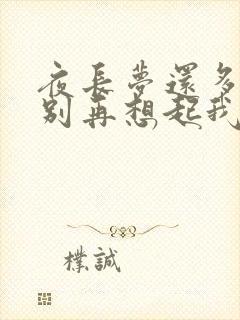 夜長夢還多
別再想起我
樸誠